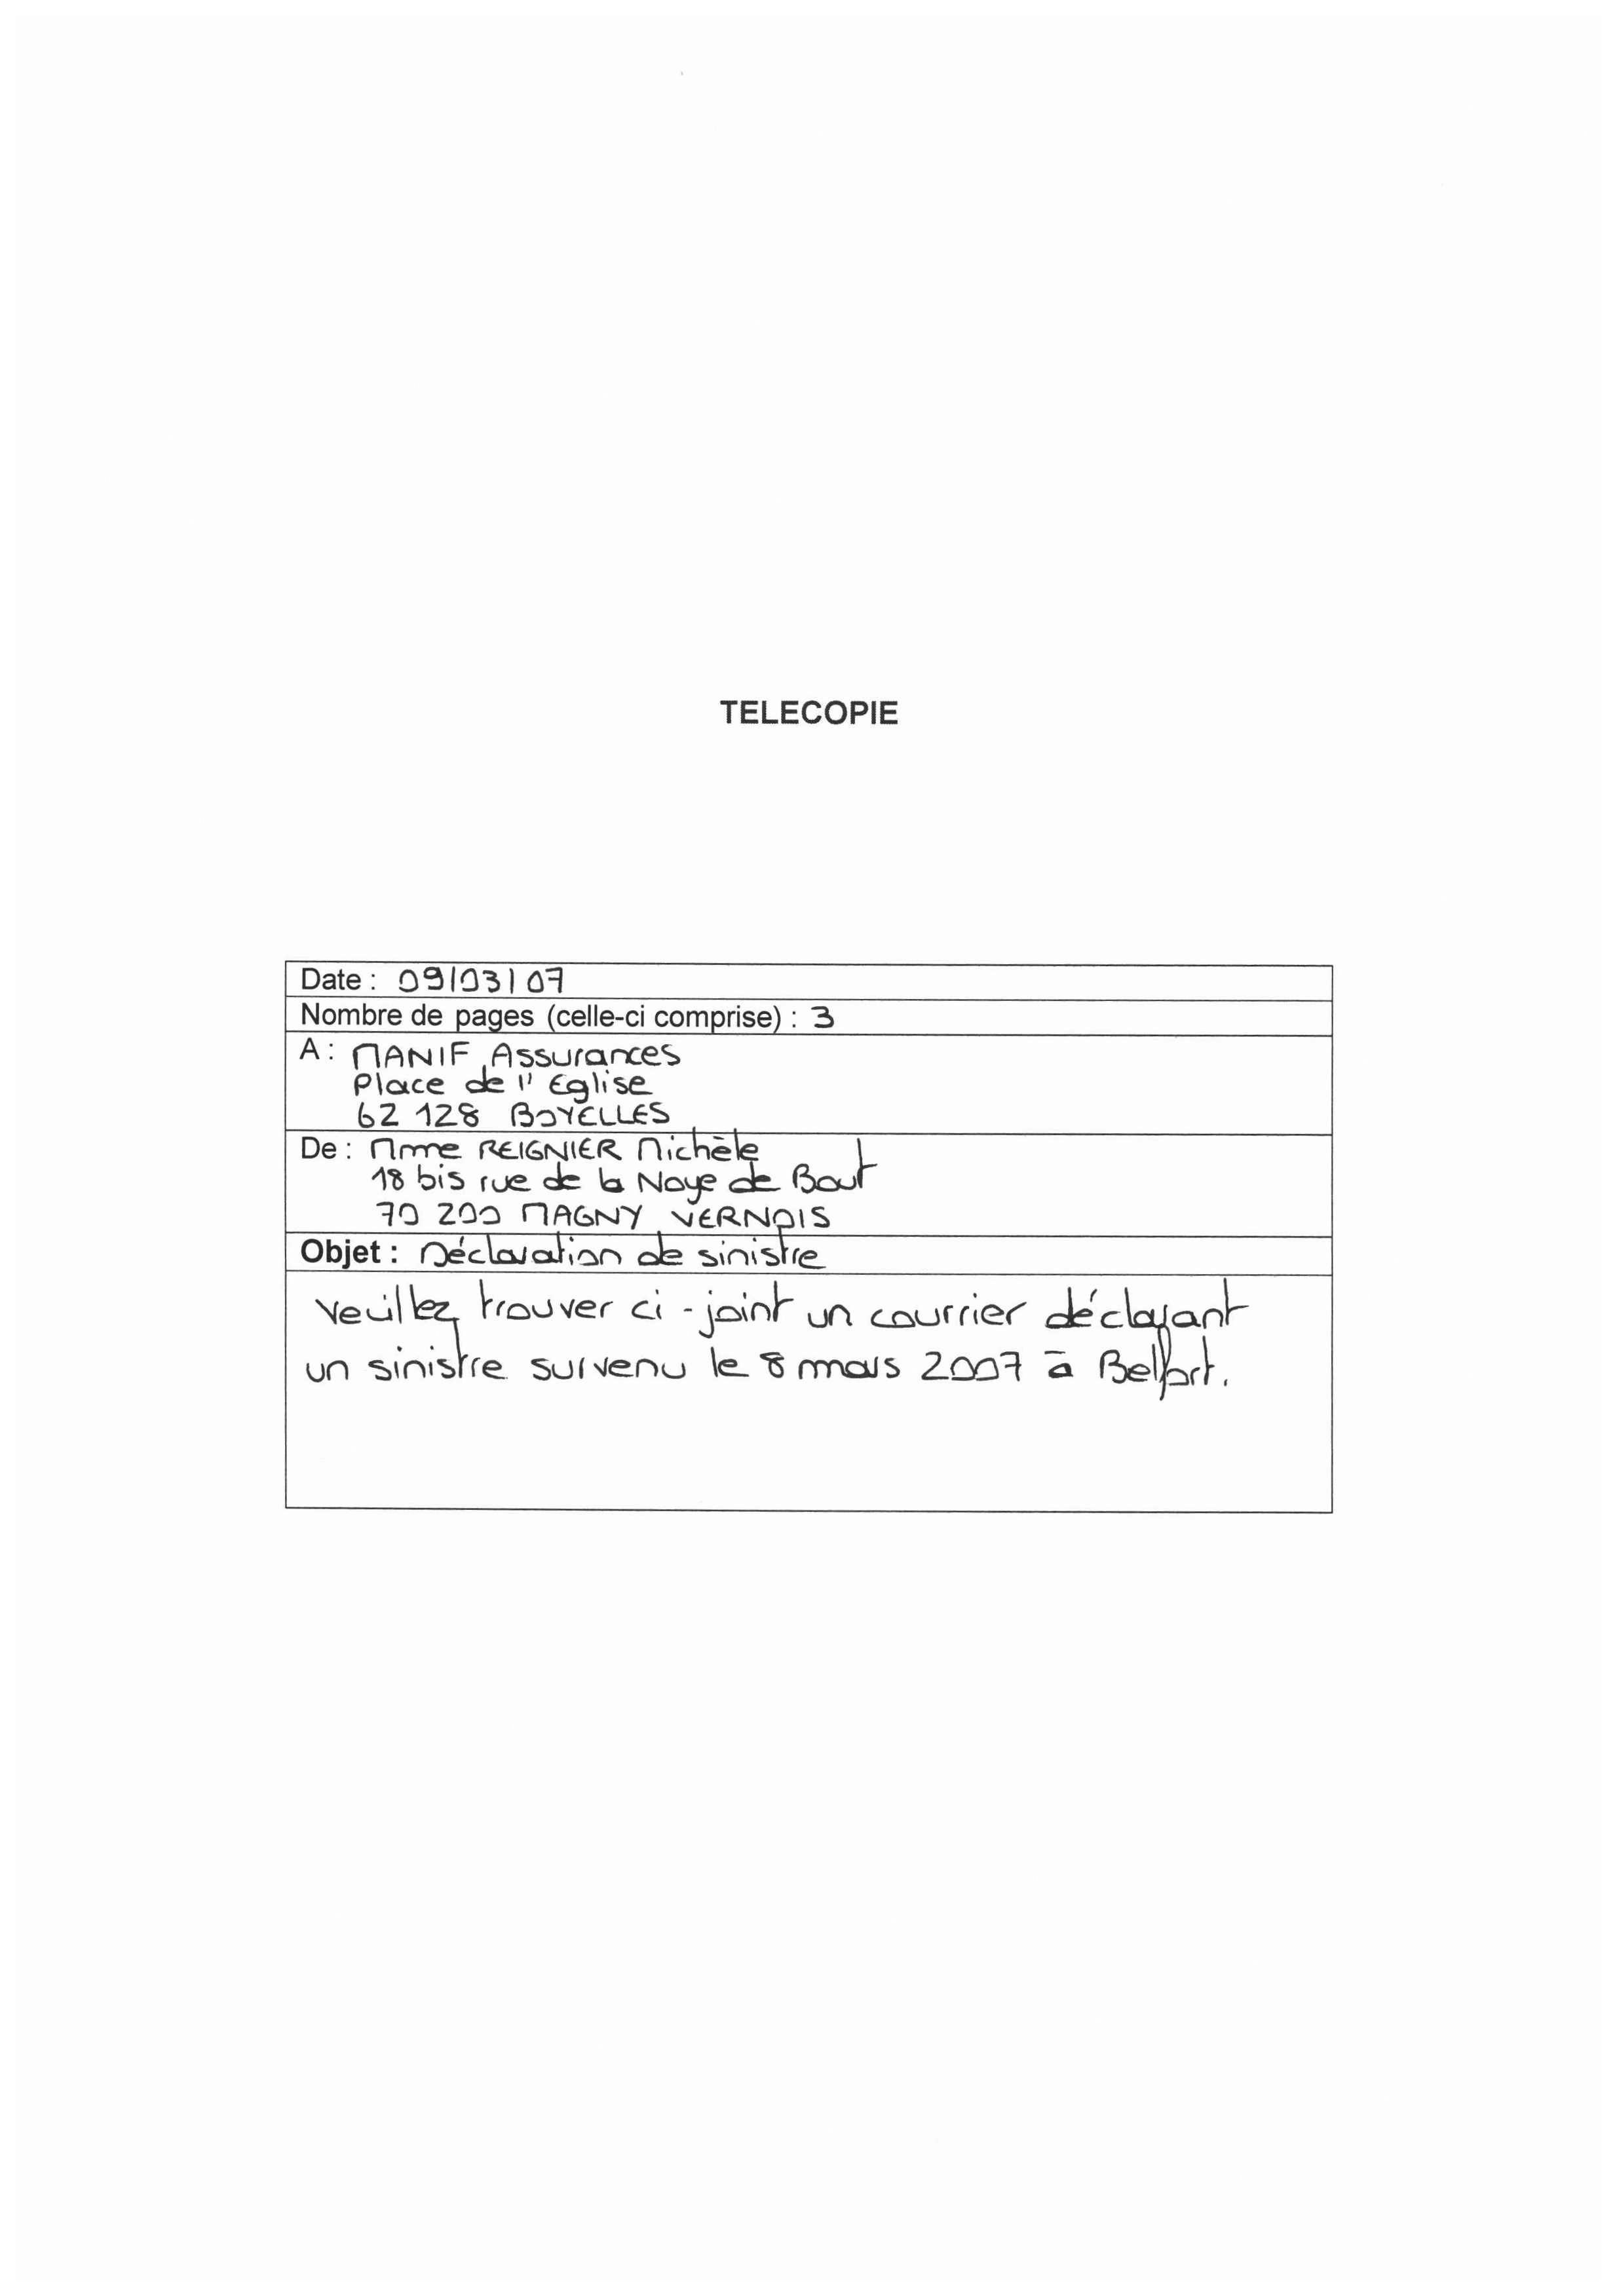 TELECOPIE
Date : 09/03/07
Nombre de pages (celle-ci comprise) : 3
A : MANIF Assurances
Place de l'Eglise
62 128 BOYELLES
De : Mme REIGNIER Michèle
18 bis rue de la Noye de Bout
70 200 MAGNY VERNOIS
Objet : Déclaration de sinistre
Veuillez trouver ci-joint un courrier déclarant
un sinistre survenu le 8 mars 2007 à Belfort.